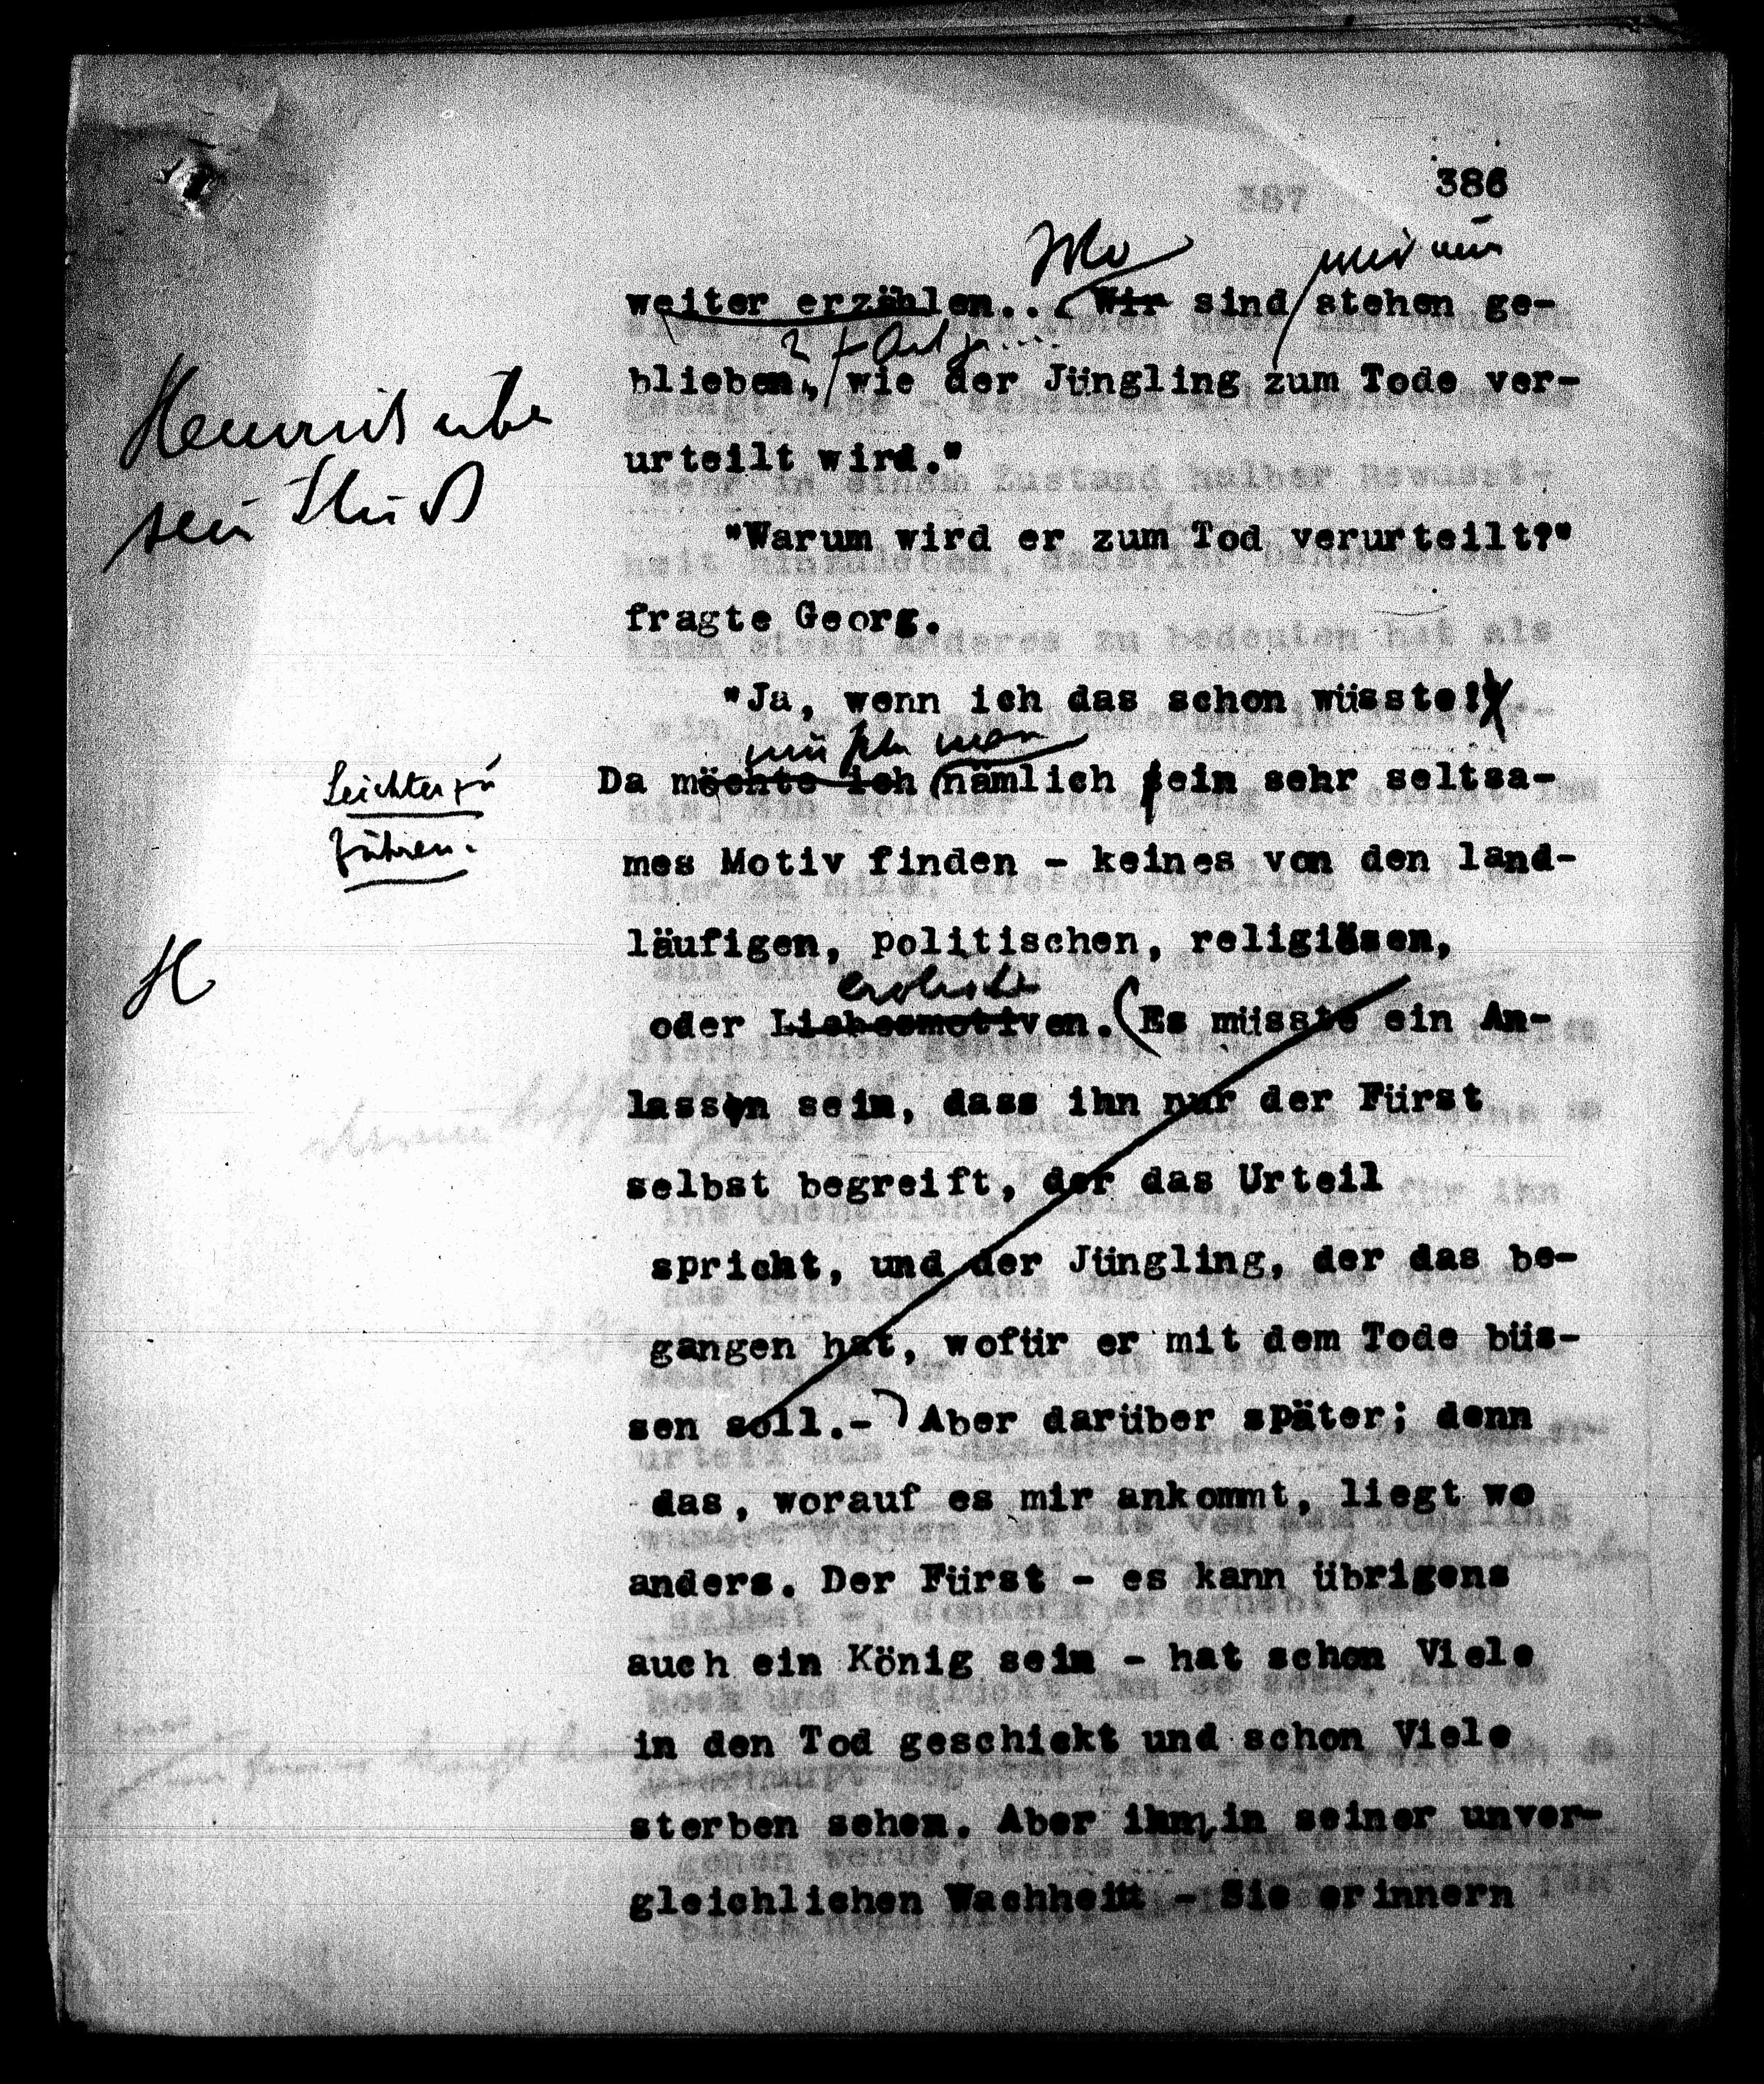 386
387
Wo
wir nun
weiter erzählen... Wir sind stehen ge-
blieben, wie der Jüngling zum Tode ver-
Heinrich über
urteilt wird."
sein Stück
"Warum wird er zum Tod verurteilt?"
fragte Georg.
"Ja, wenn ich das schon wüsste!
müsste man
Leichter zu
Da möchte ich nämlich ein sehr seltsa-
führen.
mes Motiv finden - keines von den land-
läufigen, politischen, religiösen,
H
erotische
oder Liebesmotiven. (Es müsste ein An-
lassen sein, dass ihn nur der Fürst
selbst begreift, der das Urteil
spricht, und der Jüngling, der das be-
gangen hat, wofür er mit dem Tode büs-
sen soll.-) Aber darüber später; denn
das, worauf es mir ankommt, liegt wo
anders. Der Fürst - es kann übrigens
auch ein König sein - hat schon Viele
in den Tod geschickt und schon Viele
sterben sehen. Aber ihm, in seiner unver-
gleichlichen Wachheit - Sie erinnern